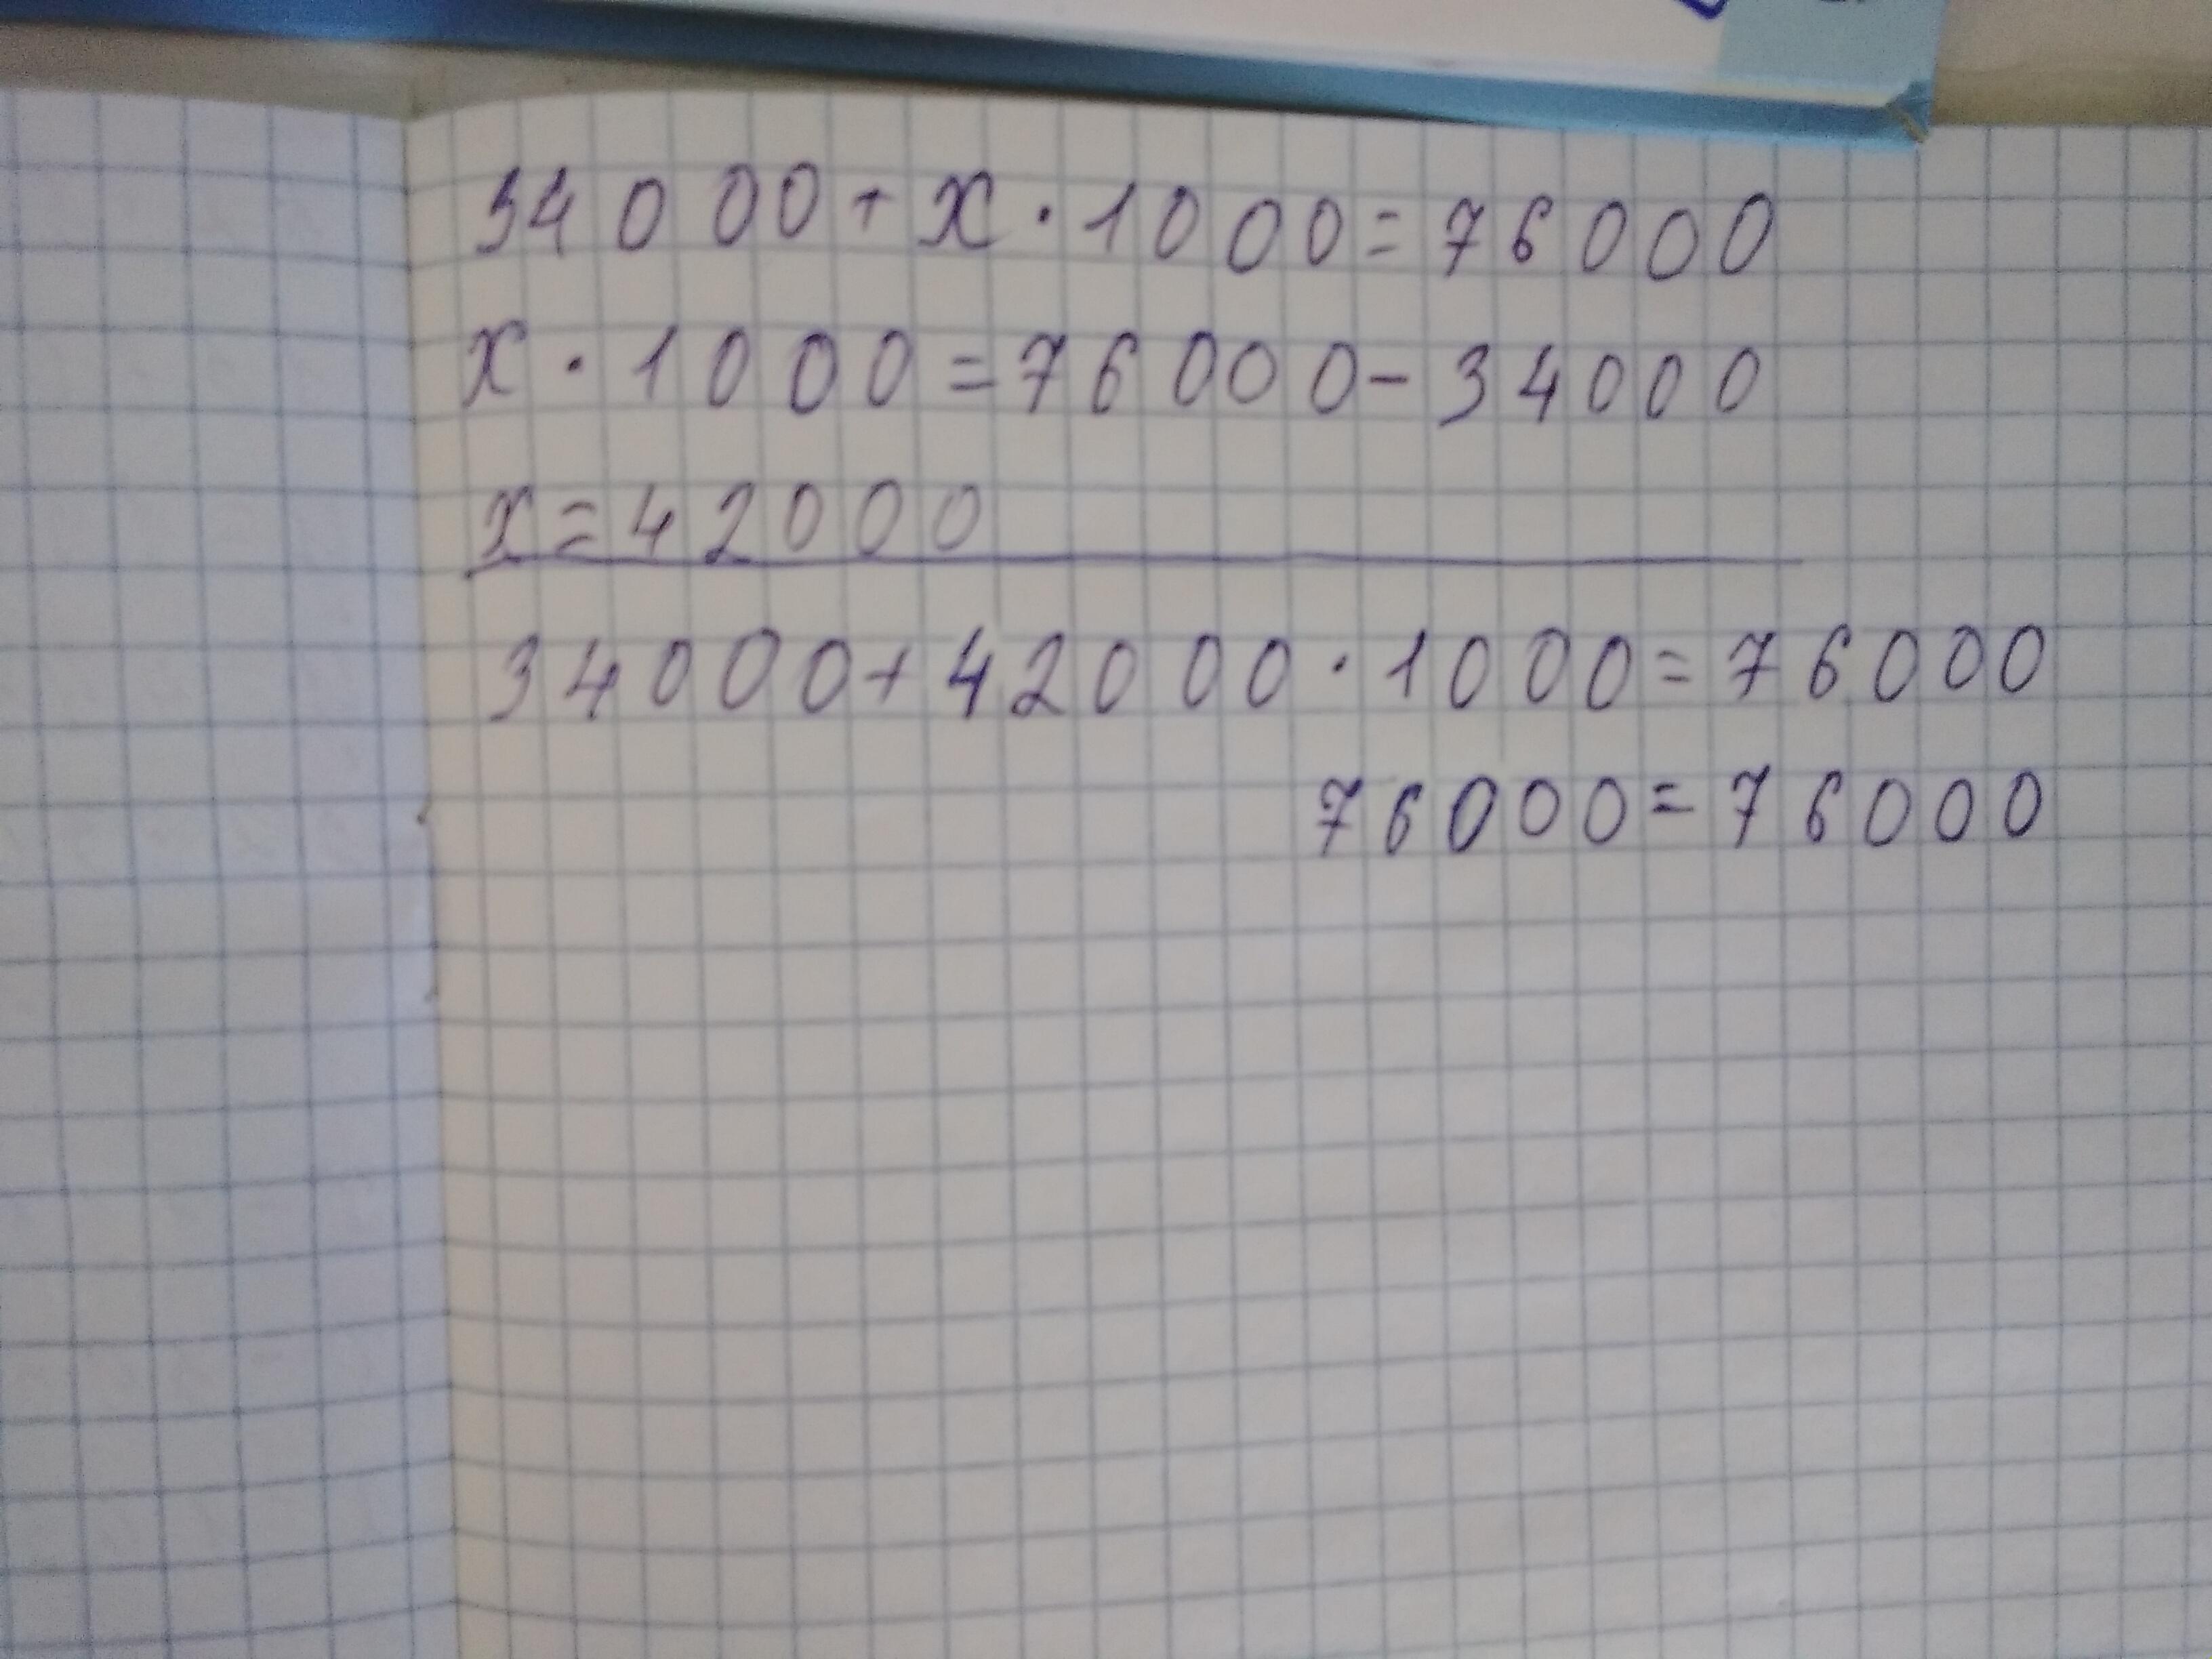 34000+x·1000=76000
x·1000=76000-34000
x=42000
34000+42000·1000=76000
76000=76000